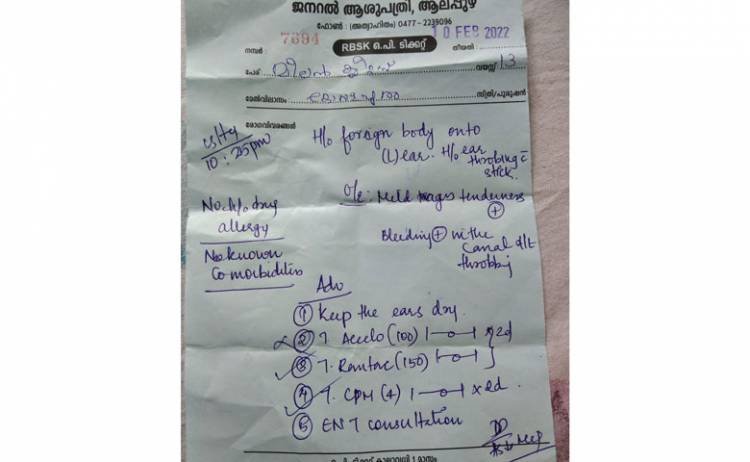 ജനറൽ ആശുപത്രി, ആലപ്പുഴ
ഫോൺ : (അത്യാഹിതം) 0477 - 2239096
നമ്പർ : 7694 RBSK ഒ.പി. ടിക്കറ്റ് തീയതി : 10 FEB 2022
പേര് വയസ്സ് 13
മേൽവിലാസം സ്ത്രീ/പുരുഷൻ
രോഗവിവരങ്ങൾ
10:25pm
H/o foreign body onto
(L) ear. H/o ear
throbbing c̄
stick.
O/e: Mild tragus tenderness
⊕
No h/o drug
allergy
Bleeding ⊕ in the
canal d/t
throbbing
No known
Comorbidities
Adv
① Keep the ears dry.
② T. Aceclo (100) 1—o—1 x 2d
③ T. Rantac (150) 1—o—1
④ T. CPM (4) 1—o—1 x 2d.
⑤ ENT consultation
ഒ.പി. ടിക്കറ്റ് കാലാവധി 1 മാസം